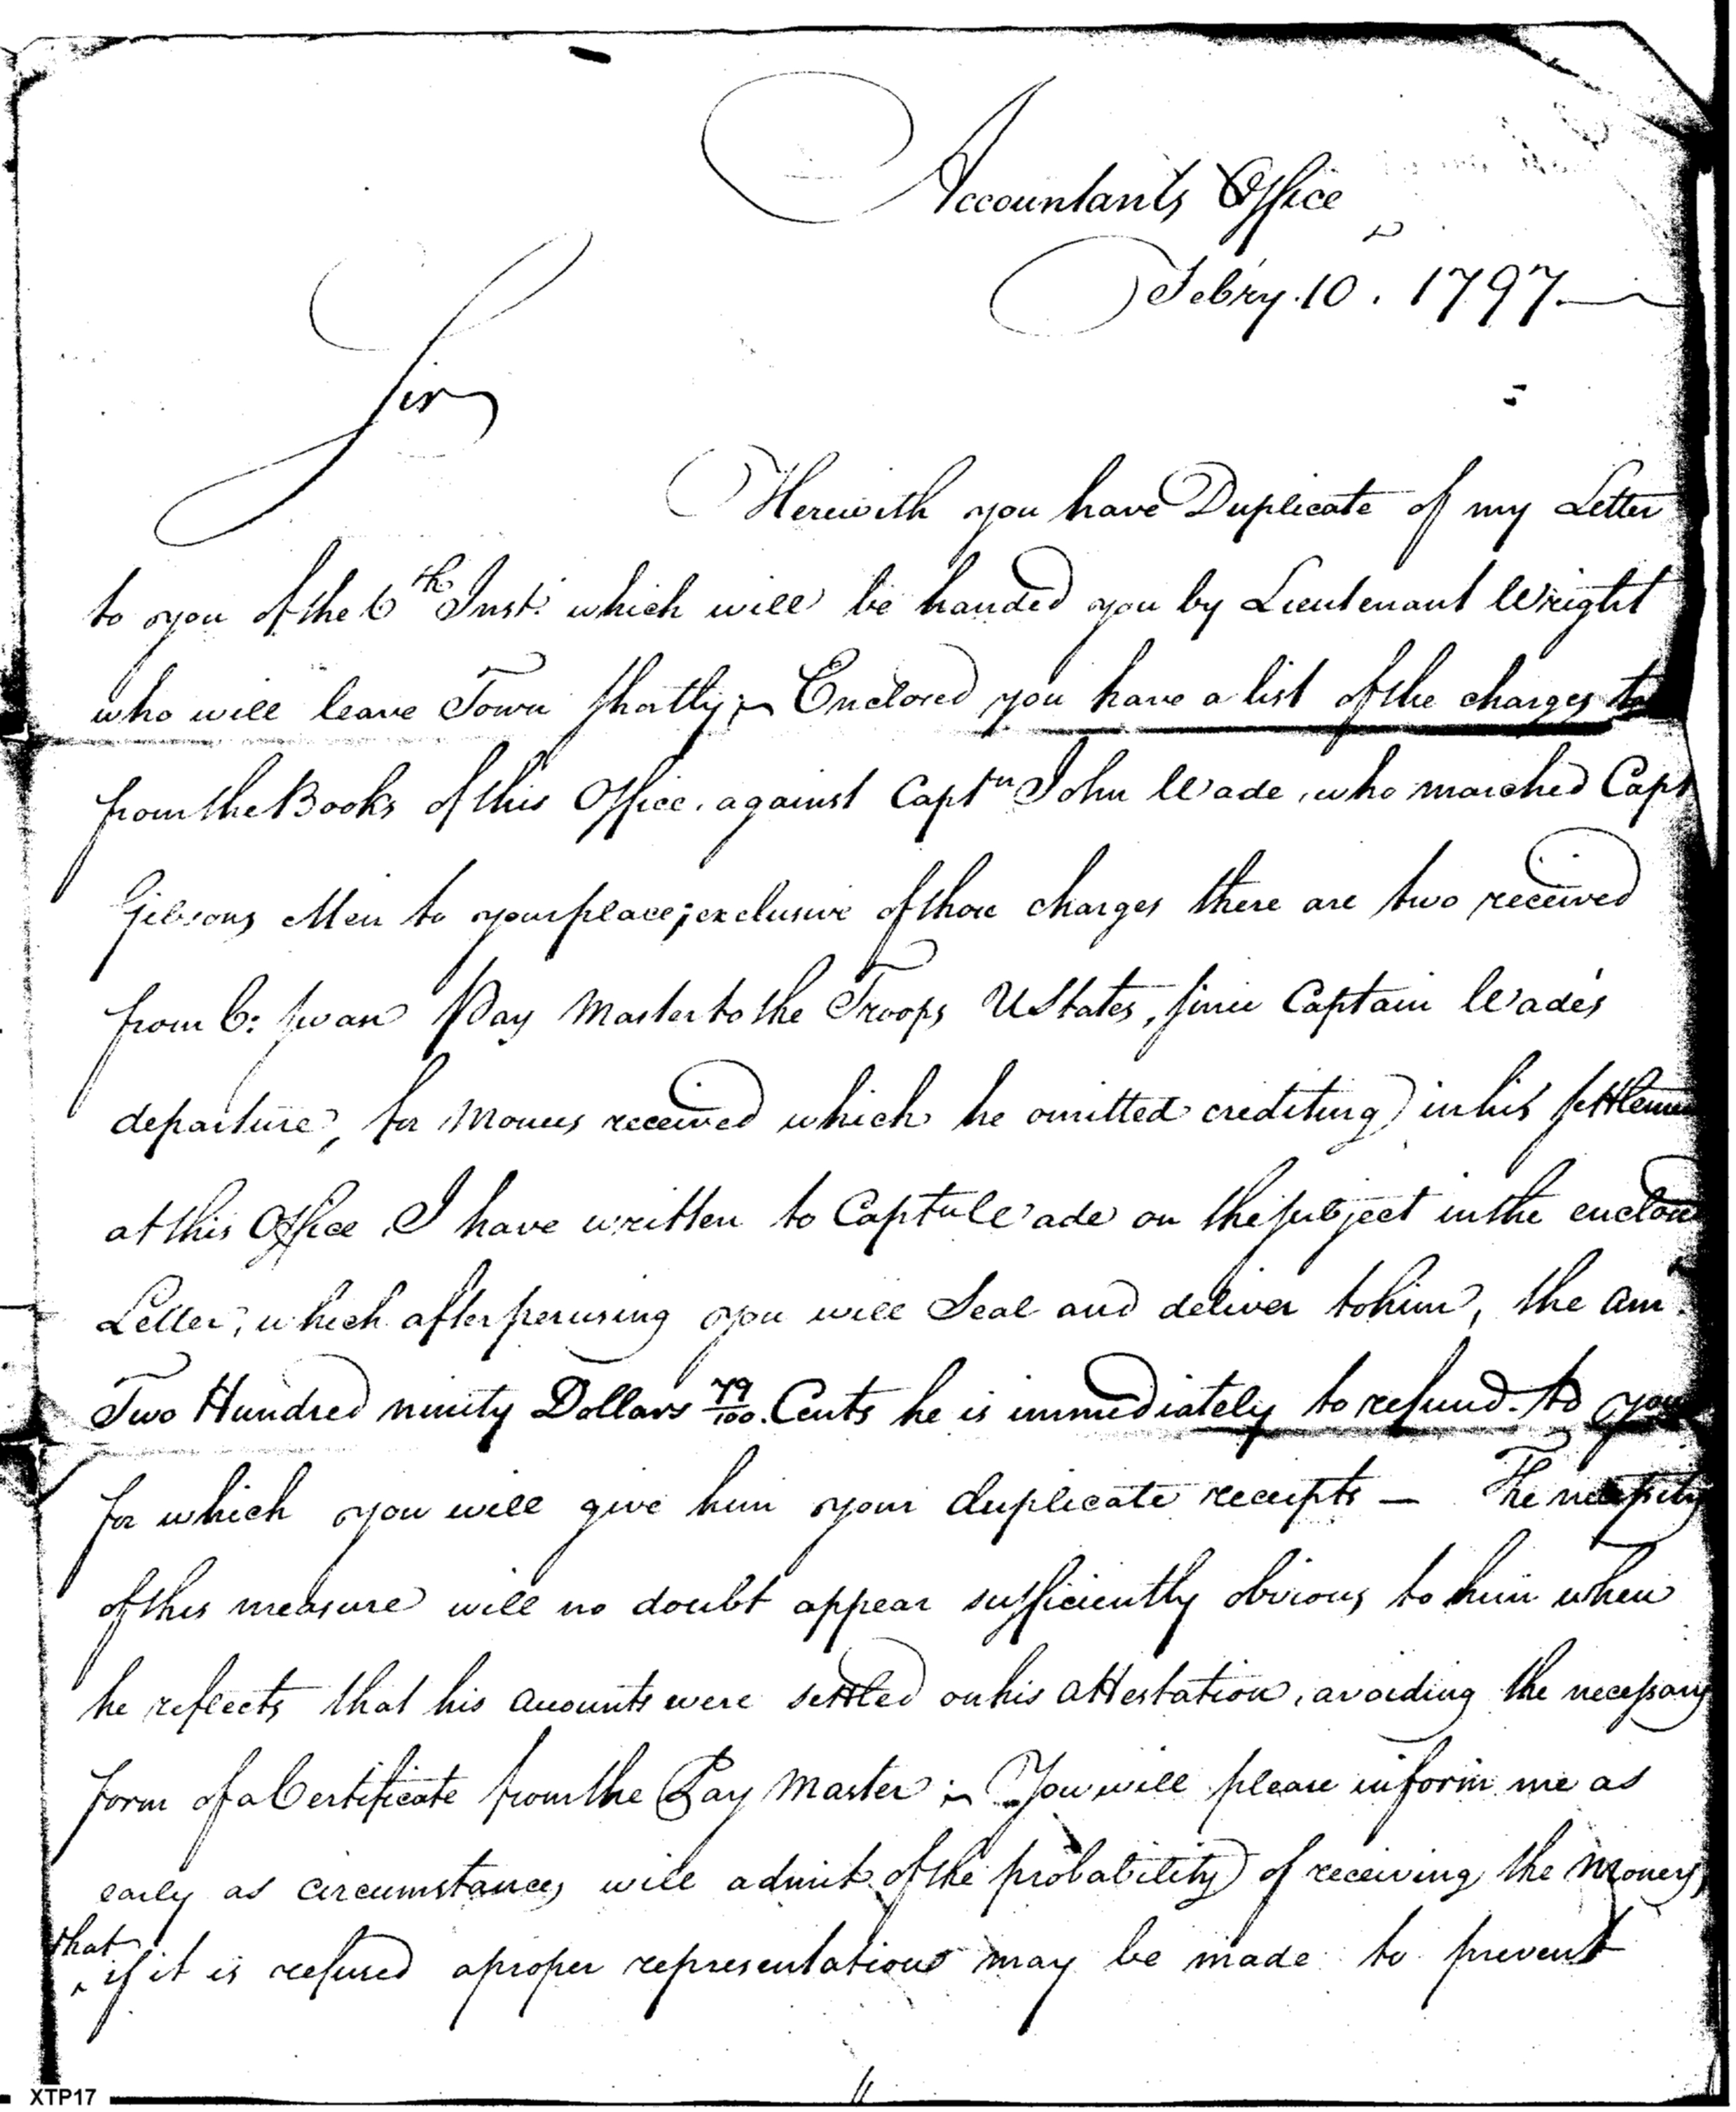 Accountants Office
Febry. 10. 1797.
Sir
Herewith you have Duplicate of my Letter
to you of the 6th Inst. which will be handed you by Lieutenant Wright
who will leave Town shortly; Enclosed you have a list of the charges
from the Books of this Office, against Captn John Wade, who marched Capt
Gibsons Men to your place; exclusive of those charges there are two received
from C: Swan Pay Master to the Troops UStates, since Captain Wade's
departure, for Monies received which he omitted crediting in his settleme
at this Office, I have written to Captn Wade on the subject in the enclose
Letter, which after perusing you will Seal and deliver to him, the am.
Two Hundred ninity Dollars 79/100 Cents he is immediately to refund to you
for which you will give him your duplicate receipts — The necessity
of this measure will no doubt appear sufficiently obvious to him when
he reflects that his accounts were settled on his attestation, avoiding the necessary
form of a Certificate from the Pay Master; You will please inform me as
early as circumstances will admit of the probability of receiving the Money,
that
if it is refused a proper representation may be made to prevent
XTP17